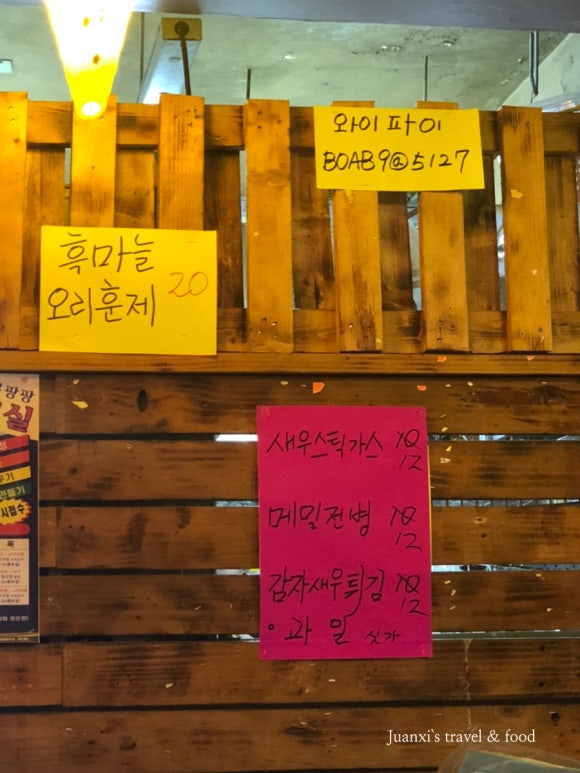 와이파이
BOAB9@5127
흑마늘
오리훈제 20
팡팡
실
새우스틱가스 10 12
메밀전병 10 12
감자새우튀김 10 12
• 과일 싯가
Juanxi's travel & food